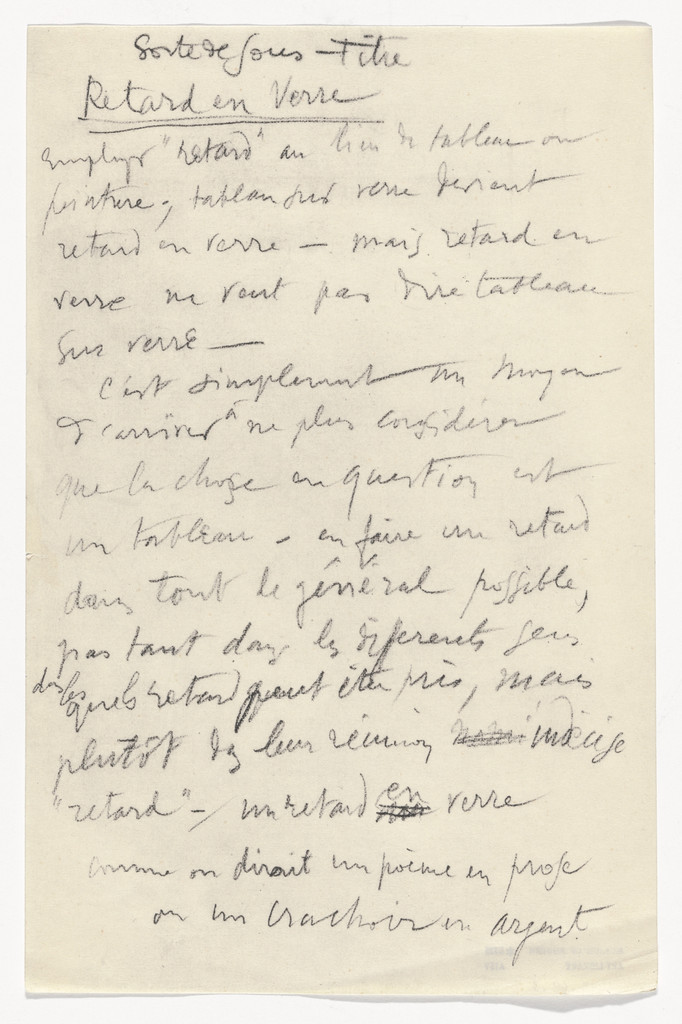 Sorte de Sous-Titre
Retard en Verre
Employer "retard" au lieu de tableau ou
peinture; tableau sur verre devient
retard en verre — mais retard en
verre ne veut pas dire tableau
sur verre —
C'est simplement un moyen
d'arriver à ne plus considérer
que la chose en question est
un tableau - en faire un retard
dans tout le général possible,
pas tant dans les différents sens
dans lesquels retard peut être pris, mais
plutôt dans leur réunion indécise
"retard" -/ un retard en verre
comme on dirait un poème en prose
ou un crachoir en argent